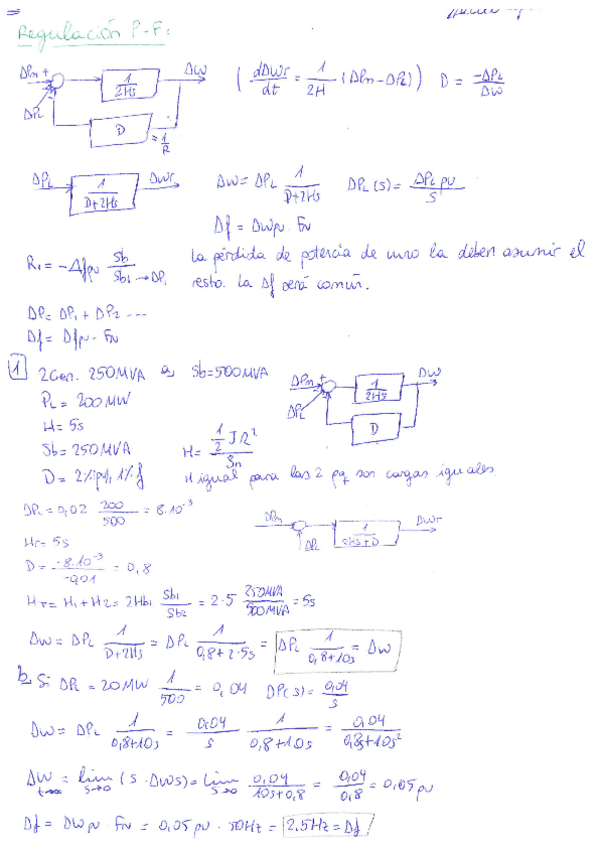 Regulación P-F:
ΔPm + 1/2Hs ΔW (dΔWr/dt = 1/2H (ΔPm - ΔPL)) D = -ΔPL/ΔW
ΔPL D = 1/R
ΔPL 1/(D+2Hs) ΔWr ΔW = ΔPL 1/(D+2Hs) ΔPL(s) = ΔPL pu/s
Δf = ΔWpu · FN
R1 = -Δfpu Sb/Sb1 → ΔP1 La pérdida de potencia de uno la deben asumir el
resto. La Δf será común.
ΔP = ΔP1 + ΔP2 ...
Δf = Δfpu · FN
1 2 Gen. 250 MVA a) Sb=500MVA ΔPm + 1/2Hs ΔW
PL = 200 MW ΔPL D
H = 5s
Sb = 250 MVA H = (1/2 J Ω²)/Sn
D = 2% pL, 1% f H igual para las 2 pq son cargas iguales.
ΔPL = 0,02 200/500 = 8·10⁻³ ΔPm ΔPL 1/(2Hs+D) ΔWr
HT = 5s
D = -8·10⁻³/-0,01 = 0,8
HT = H1 + H2 = 2Hb1 Sb1/Sb2 = 2·5 250MVA/500MVA = 5s
ΔW = ΔPL 1/(D+2Hs) = ΔPL 1/(0,8+2·5s) = ΔPL 1/(0,8+10s) = ΔW
b) Si ΔPL = 20MW 1/500 = 0,04 ΔP(s) = 0,04/s
ΔW = ΔPL 1/(0,8+10s) = 0,04/s 1/(0,8+10s) = 0,04/(0,8s+10s²)
ΔW t→∞ = lim s→0 (s·ΔWs) = lim s→0 0,04/(10s+0,8) = 0,04/0,8 = 0,05 pu
Δf = ΔWpu · FN = 0,05 pu · 50Hz = 2,5Hz = Δf